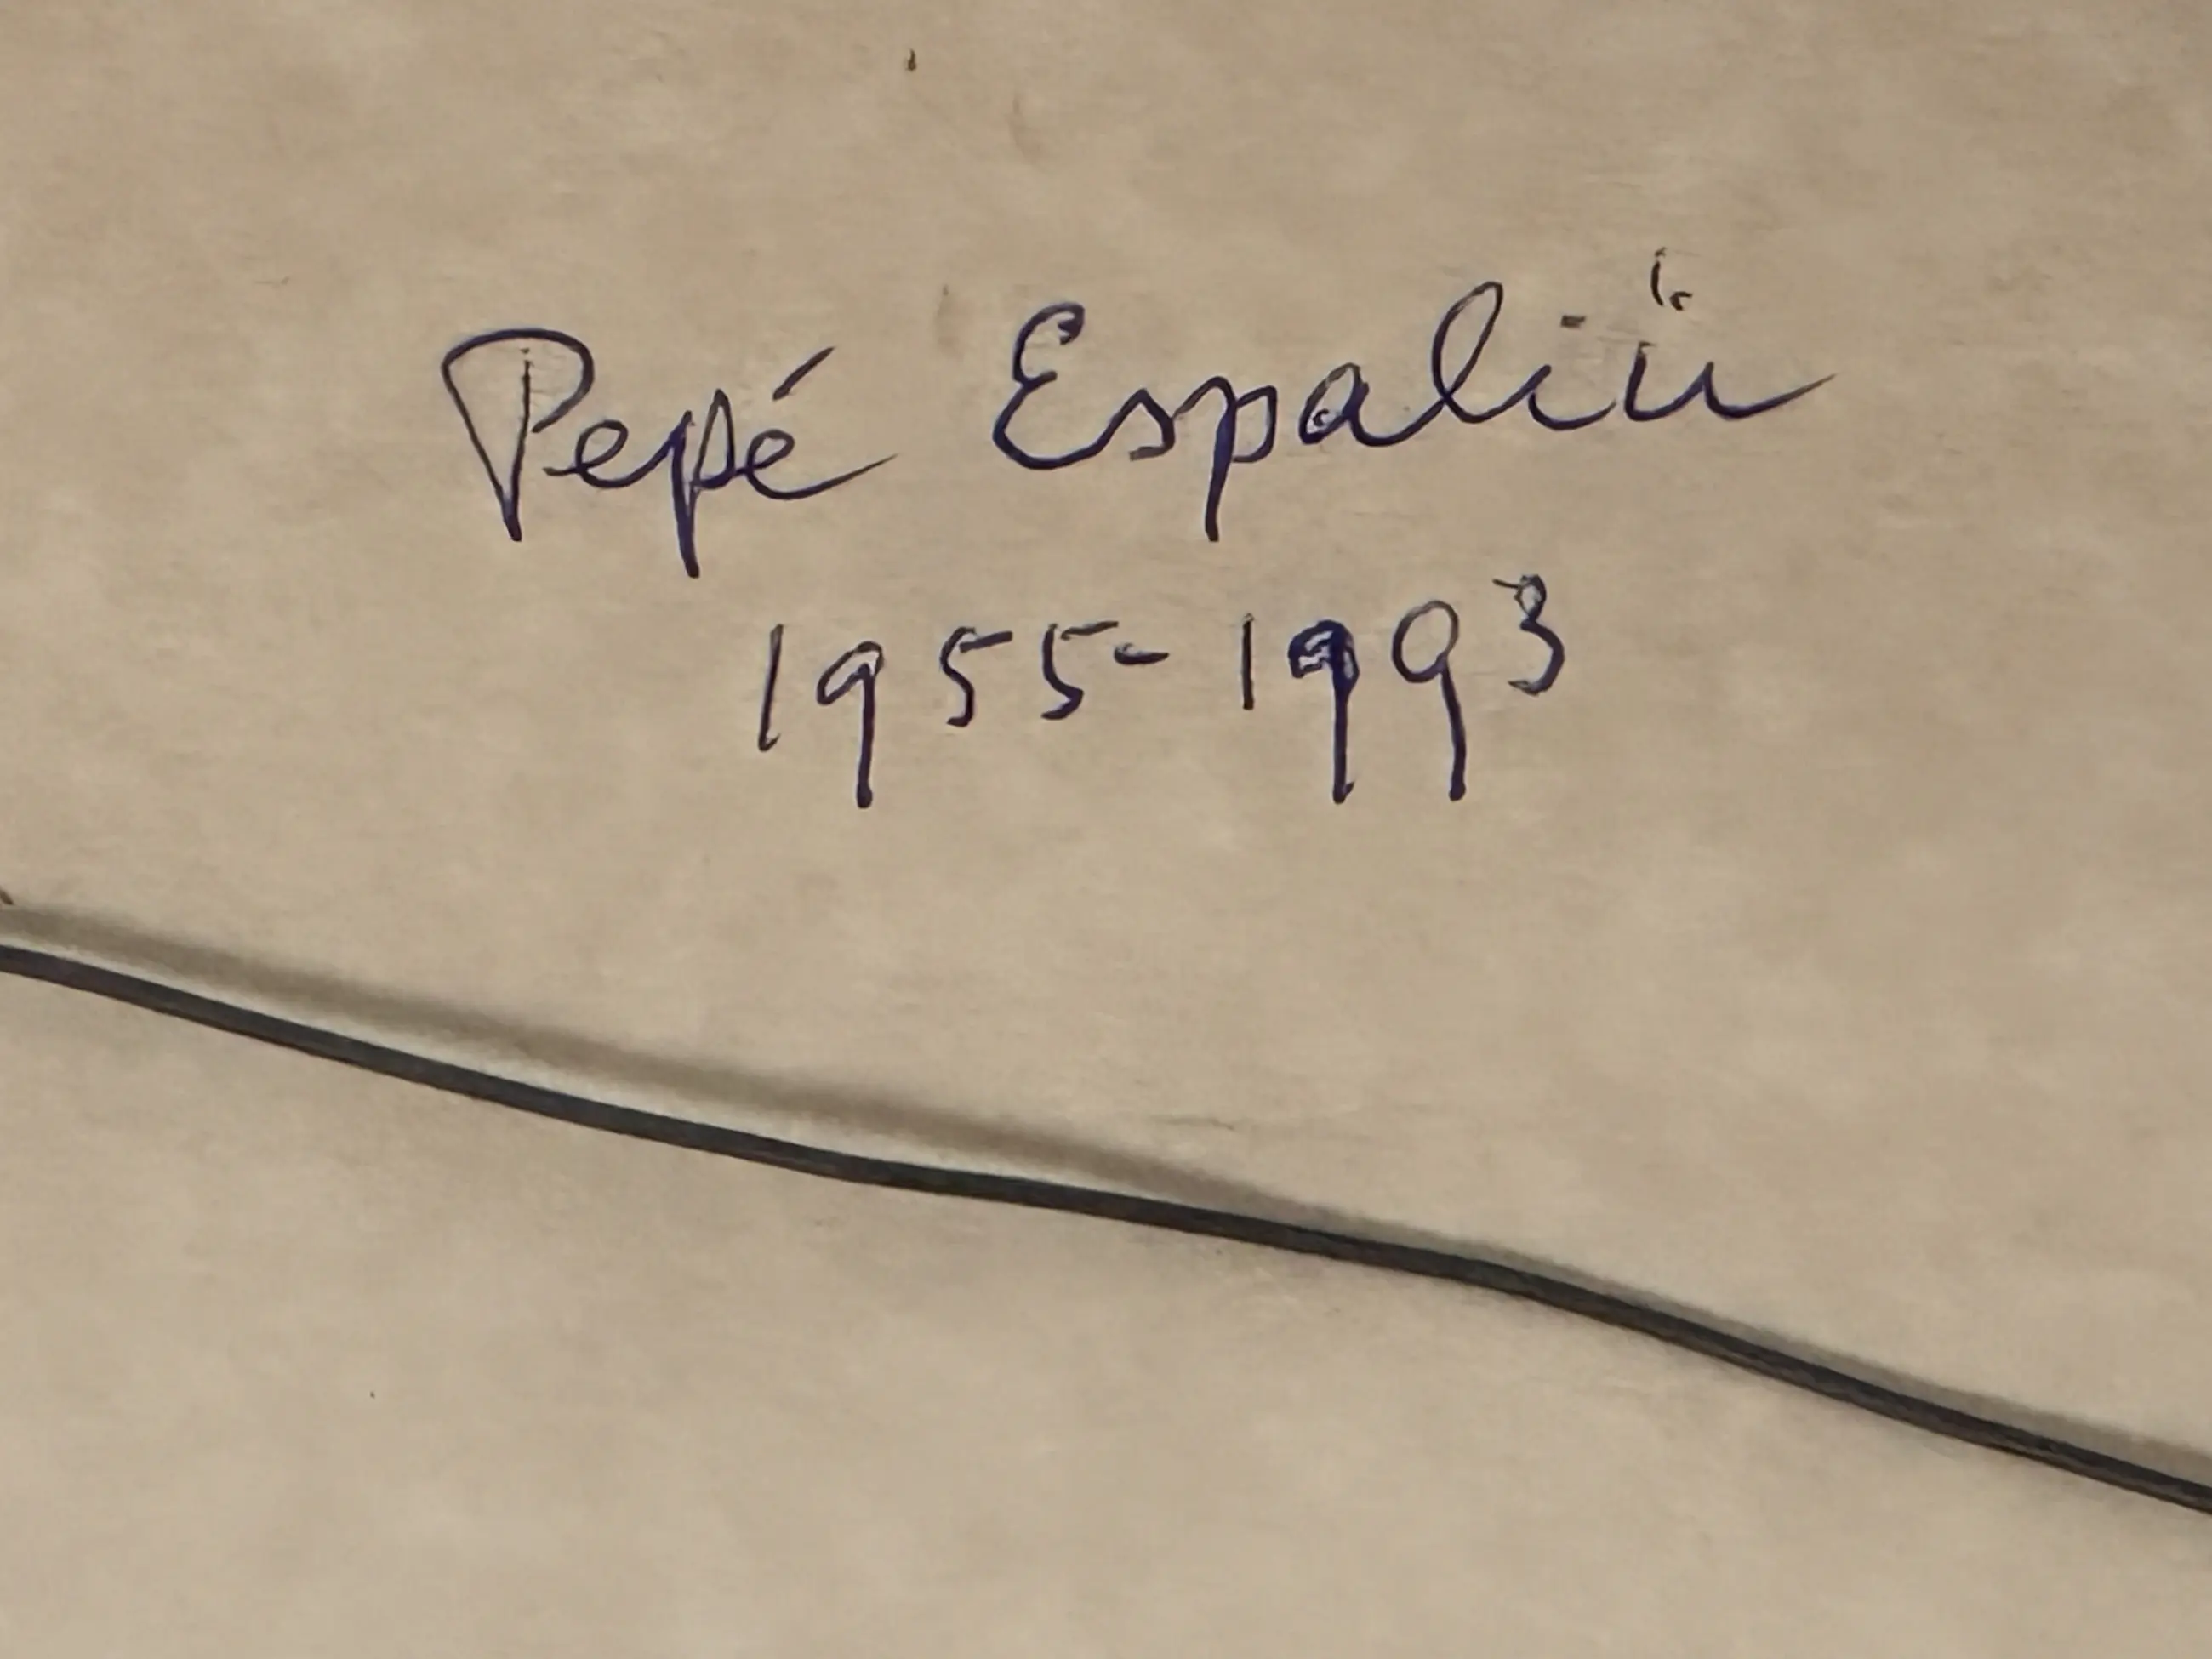 Pepé Espaliü
1955-1993